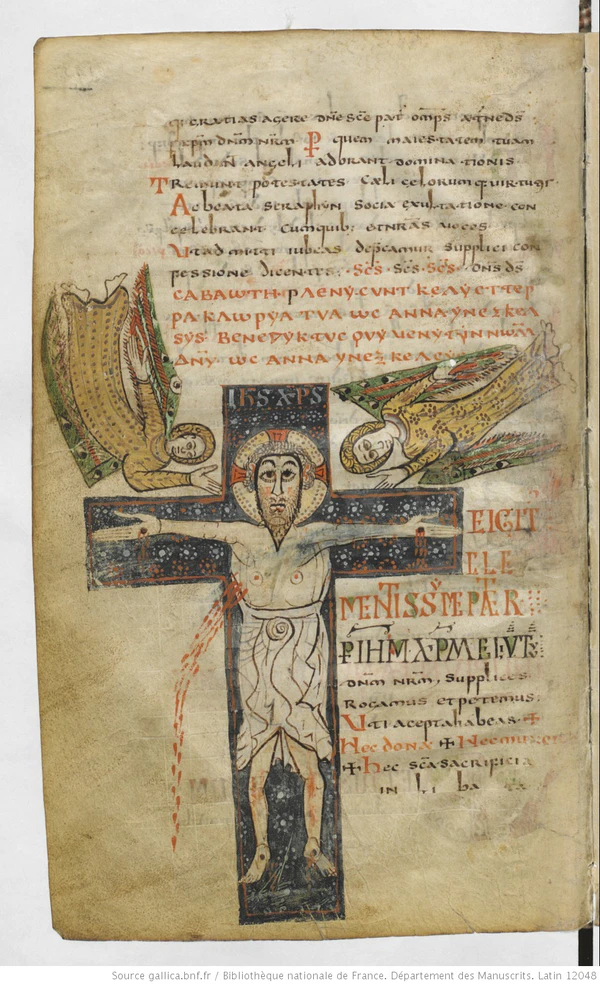 gratias agere dn̄e sc̄e pat̄ om̄ps æt̄neds̄
xp̄m dn̄m nr̄m P quem maiestatem tuam
laud̄ n̄ angeli adorant dominationis
Tremunt potestates caeli celorumq: uirtutis
Ac beata seraphyn socia exultatione con
celebrant cumquib: et nrās uoces
Ut admitti iubeas dep̄camur supplici con
fessione dicentes: Sc̄s Sc̄s Sc̄s dn̄s ds̄
CABAωTH PLENY CVNT KELY ET TER
RA KLωRYA TVA ωC ANNA YN EXKEL
SYS BENEDYKTUC QVY VENYT YN NωM
DN̄Y ωC ANNA YN EXKELCY
IHS XPS
EIGIT
ELE
MENTISSYME PATER
P IHM XPM
dn̄m nr̄m, supplices
Rogamus et petemus:
Uti acepta habeas ✠
Hec dona ✠ Hec munera
✠ Hec sc̄a sacrificia
in li ba ta
Source gallica.bnf.fr / Bibliothèque nationale de France. Département des Manuscrits. Latin 12048